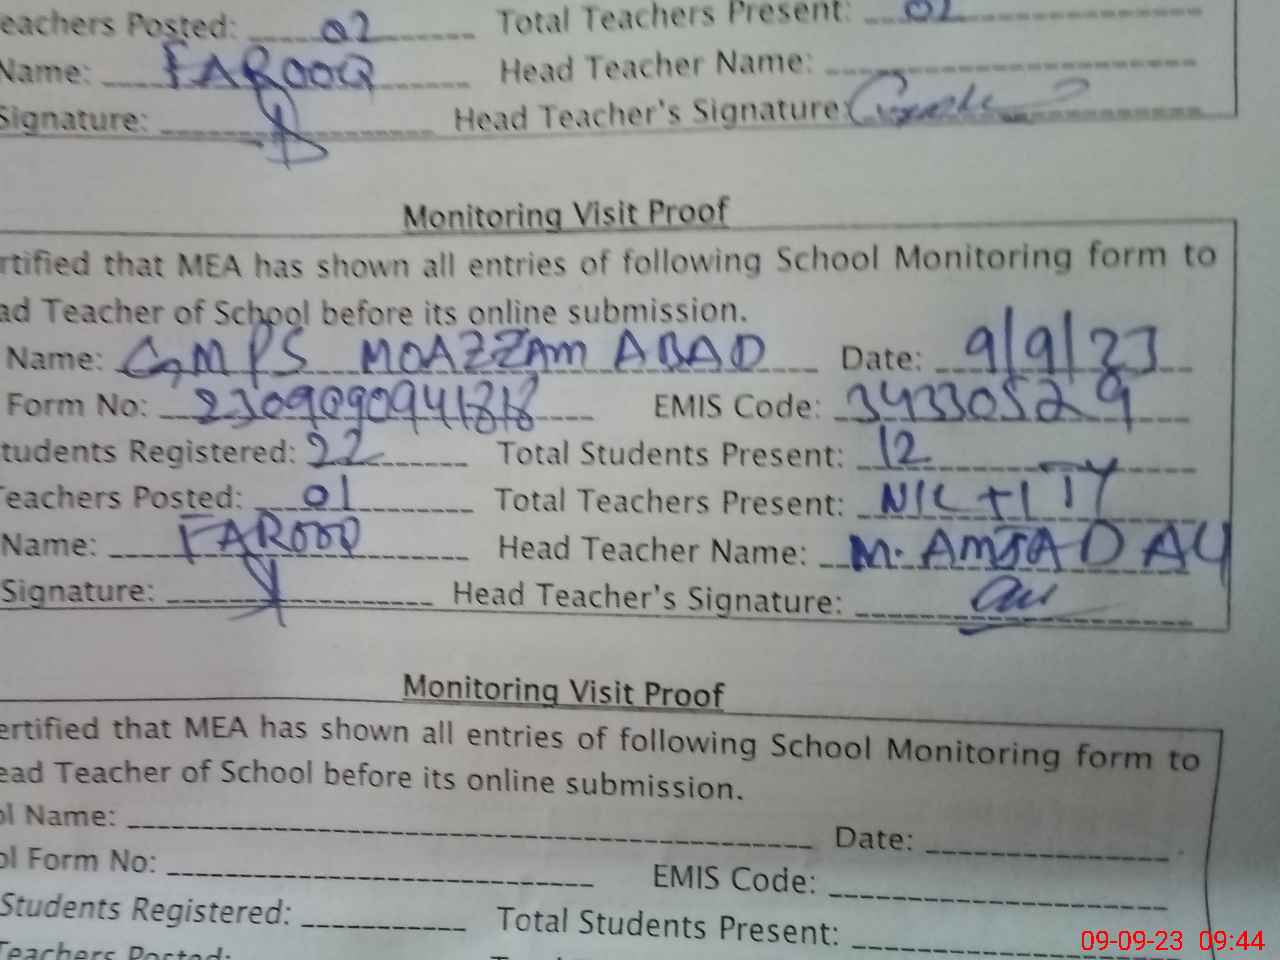 eachers Posted: 02 Total Teachers Present: 01
Name: FAROOQ Head Teacher Name:
Signature: Head Teacher's Signature:
Monitoring Visit Proof
rtified that MEA has shown all entries of following School Monitoring form to
ad Teacher of School before its online submission.
Name: GMPS MOAZZAM ABAD Date: 9/9/23
Form No: EMIS Code: 34330529
tudents Registered: 22 Total Students Present: 12
Teachers Posted: 01 Total Teachers Present: NIL +1 TY
Name: FAROOQ Head Teacher Name: M. AMJAD ALI
Signature: Head Teacher's Signature:
Monitoring Visit Proof
ertified that MEA has shown all entries of following School Monitoring form to
ead Teacher of School before its online submission.
ol Name: Date:
ol Form No: EMIS Code:
Students Registered: Total Students Present:
Teachers Posted:
09-09-23 09:44